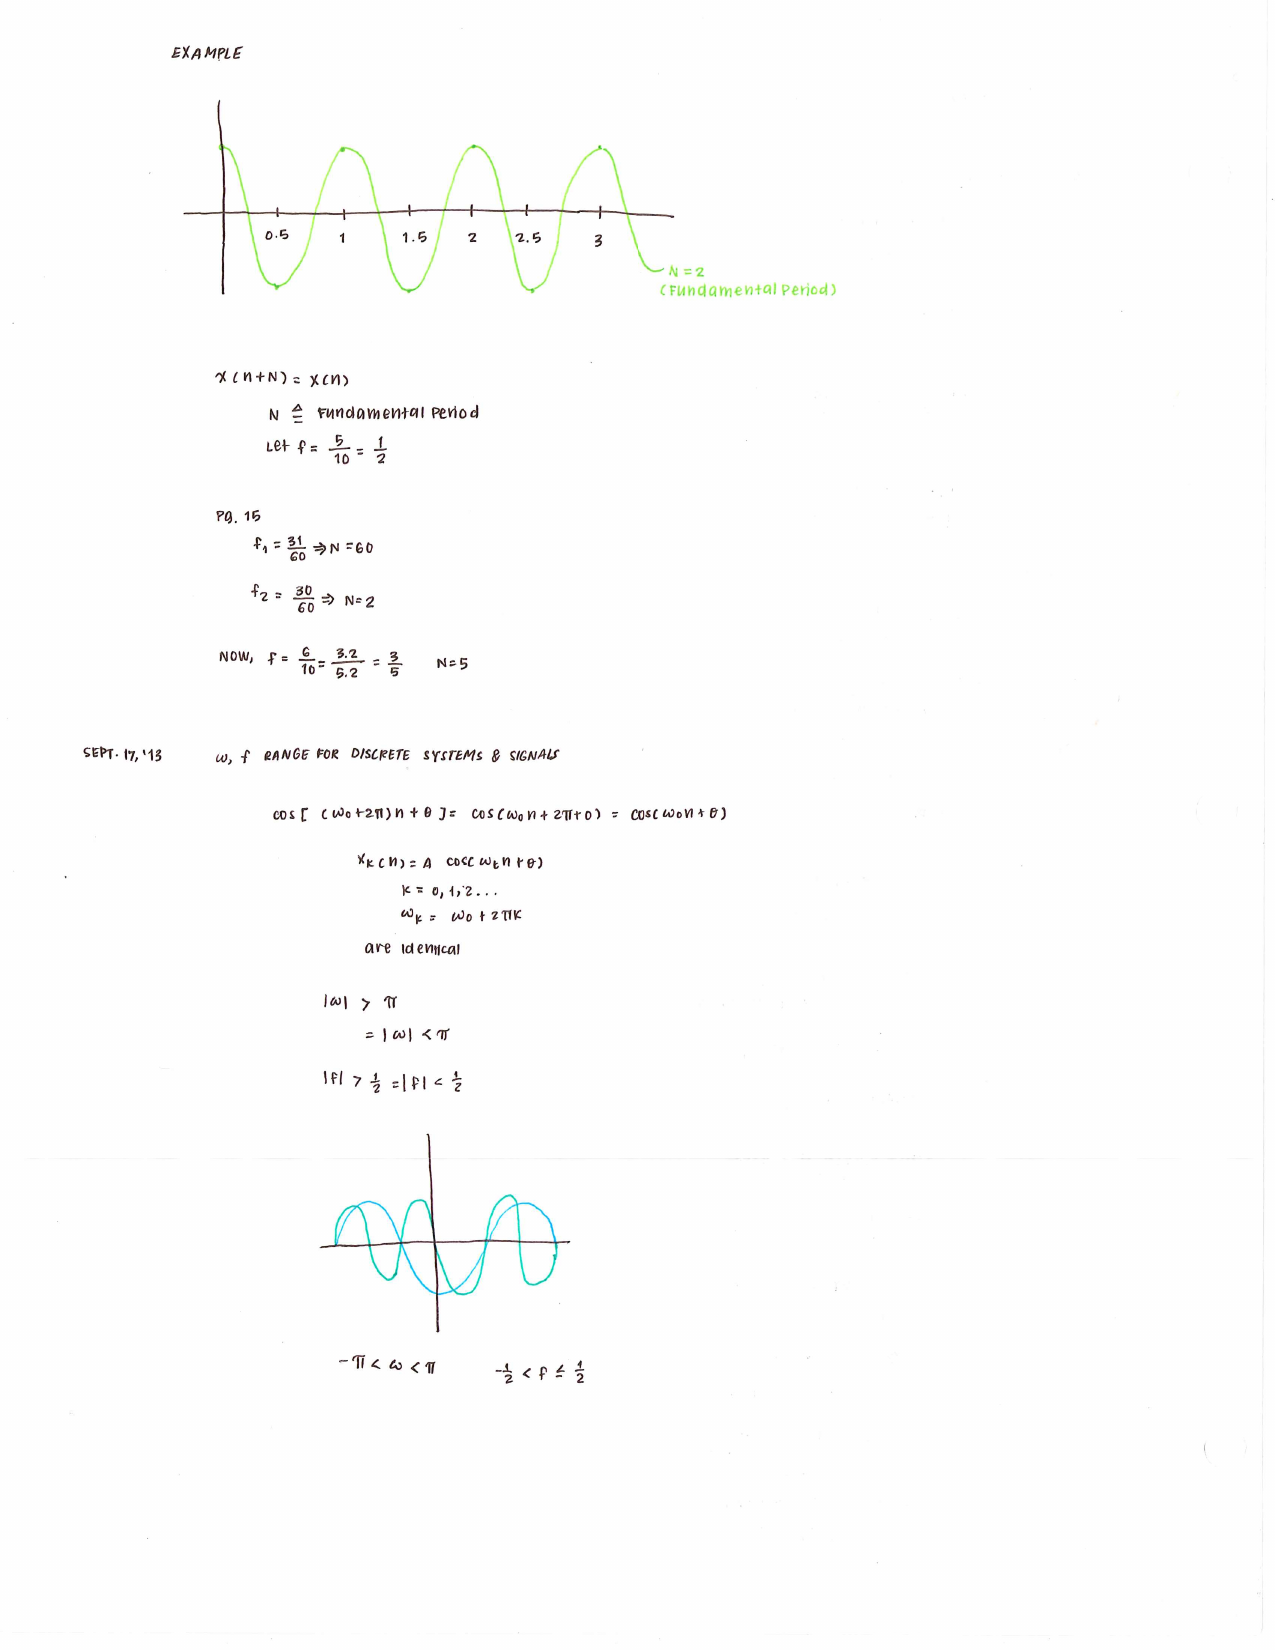 EXAMPLE
0.5 1 1.5 2 2.5 3
N = 2
(Fundamental Period)
x(n+N) = x(n)
N ≜ Fundamental Period
Let f = 5/10 = 1/2
Pg. 15
f₁ = 31/60 ⇒ N = 60
f₂ = 30/60 ⇒ N = 2
NOW, f = 6/10 = 3.2/5.2 = 3/5 N = 5
SEPT. 17, '13 ω, f RANGE FOR DISCRETE SYSTEMS & SIGNALS
cos[(ω₀+2π)n + θ] = cos(ω₀n + 2π+θ) = cos(ω₀n + θ)
xₖ(n) = A cos(ωₖn + θ)
k = 0, 1, 2...
ωₖ = ω₀ + 2πk
are identical
|ω| > π
= |ω| < π
|f| > 1/2 = |f| < 1/2
-π < ω < π -1/2 < f ≤ 1/2